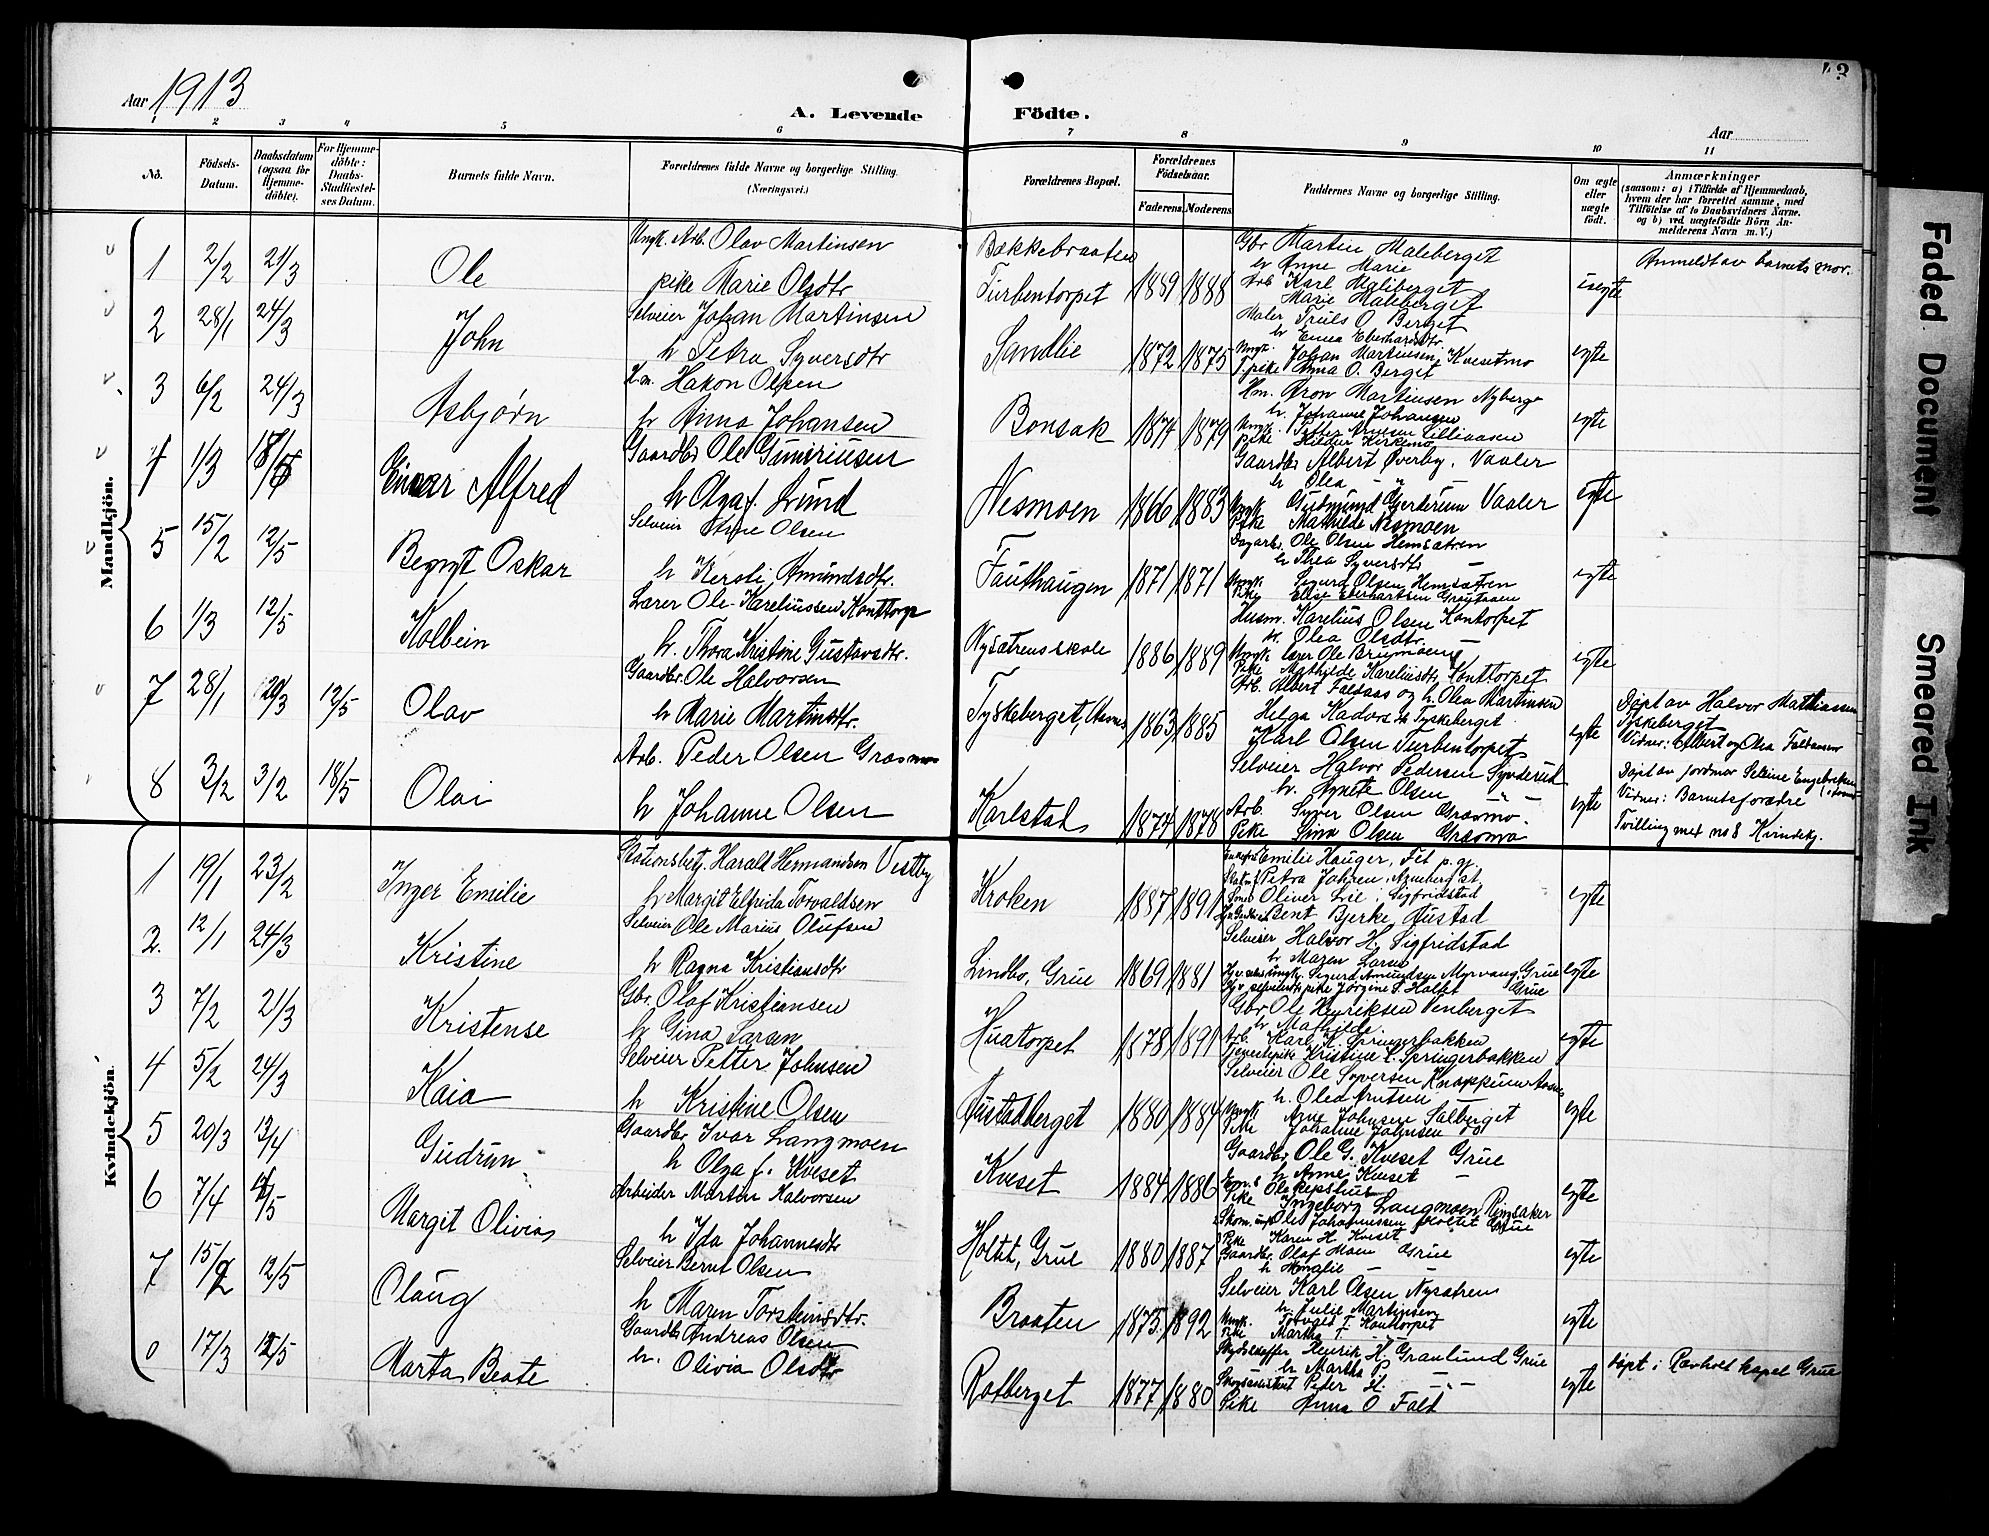 Aar 1913
A. Levende Födte.
Aar
1 2 3 4 5 6 7 8 9 10 11
No.
Födsels-Datum.
Daabsdatum (ogsaa for Hjemme-döbte).
For Hjemme-döbte: Daabs-Stadfæstel-ses Datum.
Barnets fulde Navn.
Forældrenes fulde Navne og borgerlige Stilling. (Næringsvei.)
Forældrenes Bopæl.
Forældrenes Födselsaar.
Faderens. Moderens.
Faddernes Navne og borgerlige Stilling.
Om ægte eller uægte födt.
Anmærkninger
(saasom: a) i Tilfælde af Hjemmedaab,
hvem der har forrettet samme, med
Tilföielse af to Daabsvidners Navne.
og b) ved uægtefödte Börn An-
melderens Navn m. V.)
Mandkjön.
1 2/2 21/3 Ole
Ungk. Arb. Olav Martinsen
pike Marie Olsdtr
Bækkebraaten
Turbentorpet 1889 1888
Gbr Martin Maleberget
hr Anne Marie
Arb Karl Maleberget
Marie Maleberget
uegte
Anmeldt av barnets mor.
2 28/1 24/3 John
Selveier Johan Martinsen
h Petra Syversdtr
Sandlie 1872 1875
Maler Truls O. Berget
h Emea Eberhardtdtr
Ungk. Johan Martinsen, Kvesetmo
T.pike Anna O. Berget
egte
3 6/2 24/3 Asbjørn
H.m. Hakon Olsen
h Anna Johansen
Bonsak 1874 1879
Hm. Aron Martinsen Nyberge
h. Johanne Johansen
Ungk. Petter Arnesen Lilliaasen
Pike Hildur Kirkemo
egte
4 1/3 Einar Alfred
Gaardbr Ole Gunériusen
h Olga f. Lund
Nesmoen 1866 1883
Gaardbr Albert Øverby, Vaaler
h Olea - " -
Ungk Gudmund Gjerderum Vaaler
Pike Mathilde Nesmoen
egte
5 15/2 12/5 Oskar
Selveier Olsen
h Kersti Amundsdtr.
Fauthaugen 1871 1871
Dagarb. Ole Olsen Hemsætren
h Thea Syversdtr -
Ungk Sigurd Olsen Hemsætren
Pike Elise Eberhartsen
egte
6 1/3 12/5 Kolbein
Lærer Ole Kareliussen Konttorp
h. Thora Kristine Gustavsdtr.
Nysætrens skole 1886 1889
Husm. Karelius Olsen Kontorpet
h. Olea Olsdtr. -
Ungk lærer Ole Brummoeng
Pike Mathilde Kareliusdtr Konttorpet
egte
7 28/1 12/5 Olav
Gaardbr. Ole Halvorsen
h Marie Martinsdtr.
Tyskeberget, Aasnes 1863 1885
Arb. Albert Faldaas og h. Olea Martinsen
Helga Tyskeberget
Karl Olsen Turbentorpet
egte
Døpt av Halvor Mathiassen
Tyskeberget
Vidner: Albert og Olea Faldaasen
8 3/2 3/2 18/5 Olai
Arb. Peder Olsen Grasmo
h Johanne Olsen
Karlstad 1874 1878
Selveier Halvor Pedersen Synderud
h. Agnete Olsen - " -
Arb. Syver Olsen Græsmo.
Pike Lina Olsen Græsmo
egte
Døpt av jordmor Seline Engebretsen
Vidner: Barnets forædre
Tvilling med no 8 Kvindekj.
Kvindekjön.
1 19/1 23/2 Inger Emilie
Stationsbetj. Harald Hermandsen Vestby
h Margit Elfrida Torvaldsen
Kroken 1887 1891
Emilie Hauger, Fet p. gj.
Petra Johren, Arneberg st.
Oliver Lie, Sigfridstad
Bent Bjerke, Austad
egte
2. 12/1 24/3 Kristine
Selveier Ole Marius Olufsen
h Ragna Kristiansdtr
Lindbo, Grue 1869 1881
Selveier Halvor H. Sigfridstad
h Maren Larsen
ungk. Sigurd Amundsen Myrvang, Grue
pike Jørgine S. Holtet Grue
egte
3 7/2 21/3 Kristense
Gbr. Olaf Kristiansen
h Gina Larsen
Huatorpet 1878 1891
Gbr Ole Henriksen Venberget
h Mathilde
Arb. Karl K. Springerbakken
Tjenestepike Kristine L. Springerbakken
egte
4 5/2 24/3 Kaia
Selveier Petter Johnsen
h Kristine Olsen
Austadberget 1880 1884
Selveier Ole Syversen Knappum Aasnes
h. Olea Arntsen -
Ungk Arne Johnsen Salberget
Pike Johanne Johnsen do
egte
5 20/3 13/4 Gudrun
Gaardbr. Ivar Langmoen
h Olga f. Kveset
Kveset 1884 1886
Gaardbr. Ole G. Kveset Grue
h Anne Kveset -
Ole Kepshus
Pike Ingeborg Langmoen Ringsaker
egte
6 7/4 Margit Olivia
Arbeider Martin Halvorsen
h Ida Johannesdtr
Holtet, Grue 1880 1887
Skom. ungk Ole Johannessen Holtet Grue
Pike Karen H. Kveset
Gaardbr. Olaf Moen Grue
h Amalie - -
egte
7 15/2 12/5 Olaug
Selveier Bernt Olsen
h Maren Torsteinsdtr.
Braaten 1875 1892
Selveier Karl Olsen Nysætren
h Julie Martinsen
Ungk. Torvald T. Konttorpet
Pike Martha T. - " -
egte
17/3 12/5 Marta Beate
Gaardbr Andreas Olsen
h. Olivia Olsdtr
Rotberget 1877 1880
Skydsskaffer Henrik H. Granlund Grue
h Martha P. -
Skogsassistent Peder H. - " -
Pike Anna O. Falt
egte
døpt i Rævholt kapel Grue
Faded Document
Smeared Ink